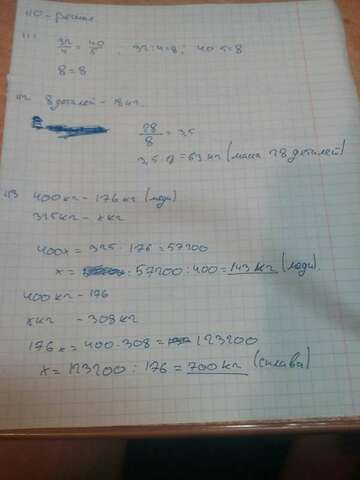 110 - решение
111
32/4 = 40/5, 32:4=8; 40:5=8
8=8
112 8 деталей - 18 кг.
28/8 = 3,5
3,5 · 18 = 63 кг (масса 28 деталей)
113 400кг - 176 кг (меди)
325кг - x кг
400x = 325 · 176 = 57200
x = 57200 : 400 = 143 кг (меди)
400кг - 176
x кг - 308 кг
176x = 400 · 308 = 123200
x = 123200 : 176 = 700 кг (сплава)